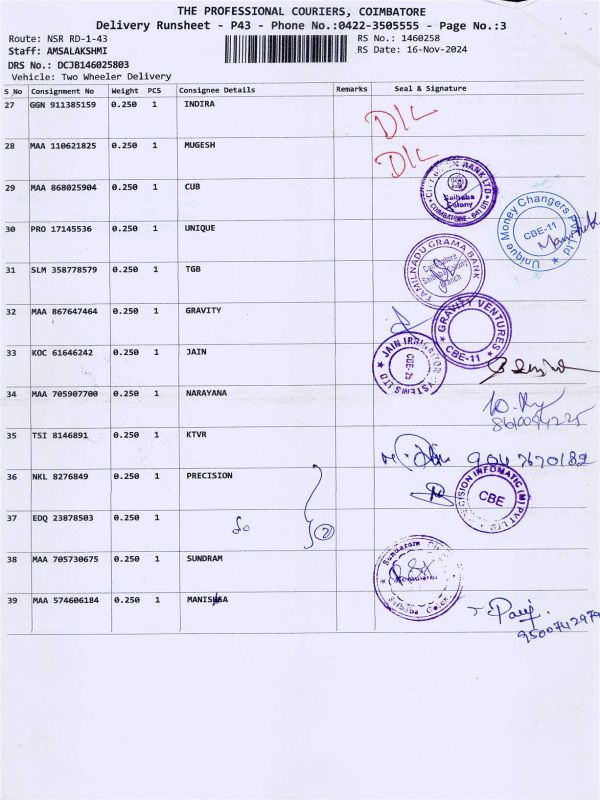 THE PROFESSIONAL COURIERS, COIMBATORE
Delivery Runsheet - P43 - Phone No.:0422-3505555 - Page No.:3
Route: NSR RD-1-43 RS No.: 1460258
Staff: AMSALAKSHMI RS Date: 16-Nov-2024
DRS No.: DCJB146025803
Vehicle: Two Wheeler Delivery
S_No Consignment No Weight PCS Consignee Details Remarks Seal & Signature
27 GGN 911385159 0.250 1 INDIRA D/L
28 MAA 110621825 0.250 1 MUGESH D/L
29 MAA 868025904 0.250 1 CUB
BANK LTD
Saibaba
Colony
COIMBATORE - 641 011
30 PRO 17145536 0.250 1 UNIQUE
Unique Money Changers Pvt Ltd
CBE-11
31 SLM 358778579 0.250 1 TGB
TAMILNADU GRAMA BANK
Coimbatore
Branch
32 MAA 867647464 0.250 1 GRAVITY
GRAVITY VENTURES
CBE-11
33 KOC 61646242 0.250 1 JAIN
JAIN IRRIGATION SYSTEMS LTD
34 MAA 705907700 0.250 1 NARAYANA
35 TSI 8146891 0.250 1 KTVR
36 NKL 8276849 0.250 1 PRECISION
PRECISION INFOMATIC (M) PVT LTD
CBE
37 EDQ 23878503 0.250 1 do 2
38 MAA 705730675 0.250 1 SUNDRAM
Sundaram
39 MAA 574606184 0.250 1 MANISHSA
9500742979